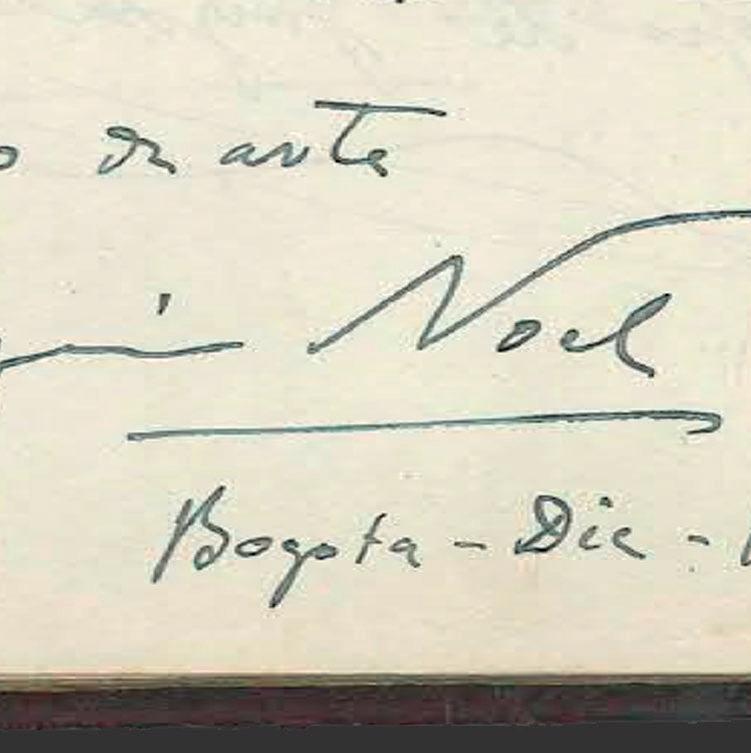 en arte
Noel
Bogota - Dic -